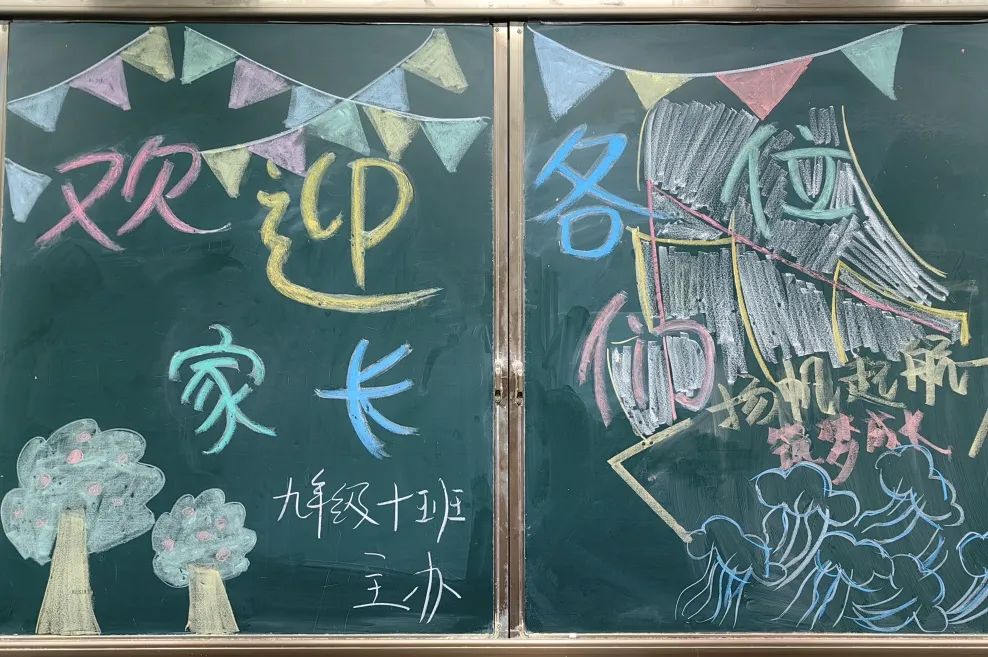 欢迎各位
家长们
九年级十班
主办
扬帆起航
筑梦成长